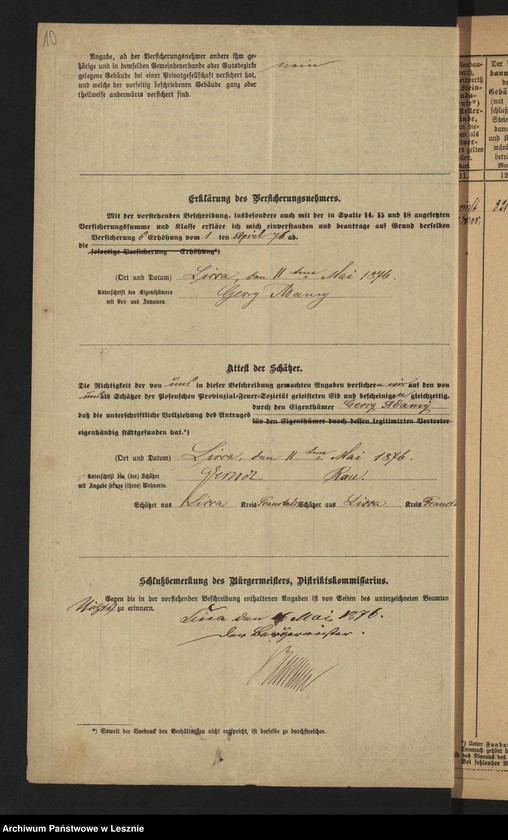 10
Angabe, ob der Versicherungsnehmer andere ihm ge-
hörige und in demselben Gemeindeverbande oder Gutsbezirke
gelegene Gebäude bei einer Privatgesellschaft versichert hat,
und welche der vorseitig beschriebenen Gebäude ganz oder
theilweise anderwärts versichert sind.
nein
Erklärung des Versicherungsnehmers.
Mit der vorstehenden Beschreibung, insbesondere auch mit der in Spalte 14, 15 und 18 angesetzten
Versicherungssumme und Klasse erkläre ich mich einverstanden und beantrage auf Grund derselben
die Versicherung Erhöhung vom 1 ten April 76 ab.
sofortige Versicherung Erhöhung*)
(Ort und Datum) Lissa, den 11 ten Mai 1876.
Unterschrift des Eigenthümers
mit Vor- und Zunamen.
Georg Adamy
Attest der Schätzer.
Die Richtigkeit der von uns in dieser Beschreibung gemachten Angaben versichern wir auf den von
uns als Schätzer der Posenschen Provinzial-Feuer-Sozietät geleisteten Eid und bescheinigen gleichzeitig,
daß die unterschriftliche Vollziehung des Antrages durch den Eigenthümer Georg Adamy
für den Eigenthümer durch dessen legitimirten Vertreter
eigenhändig stattgefunden hat.*)
(Ort und Datum) Lissa, den 11 ten Mai 1876.
Unterschrift des (der) Schätzer
mit Angabe seines (ihres) Wohnorts.
Rau.
Schätzer aus Lissa Kreis Fraustadt Schätzer aus Lissa Kreis
Schlußbemerkung des Bürgermeisters, Distriktskommissarius.
Gegen die in der vorstehenden Beschreibung enthaltenen Angaben ist von Seiten des unterzeichneten Beamten
Nichts zu erinnern.
Lissa den Mai 1876.
Der Bürgermeister.
*) Soweit der Vordruck den Verhältnissen nicht entspricht, ist derselbe zu durchstreichen.
11.
12
*) Unter Funda
Demnach gehört
das Niveau des
Bei fehlender
Archiwum Państwowe w Lesznie